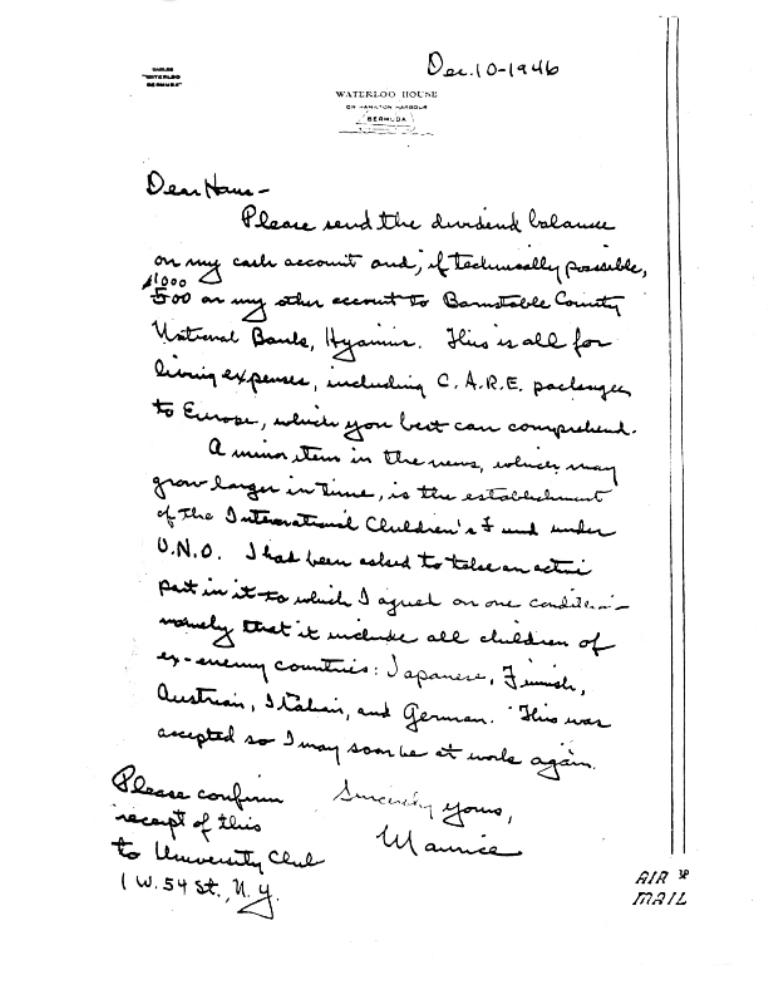 CABLES
"WATERLOO
BERMUDA"
Dec. 10-1946
WATERLOO HOUSE
ON HAMILTON HARBOUR
BERMUDA
Dear Hans -
Please send the dividend balance
on my cash account and, if technically possible,
$1000
500 on my other account to Barnstable County
National Bank, Hyannis. This is all for
living expenses, including C.A.R.E. packages
to Europe, which you best can comprehend.
A minor item in the news, which may
grow larger in time, is the establishment
of the International Children's Fund under
U.N.O. I had been asked to take an active
part in it to which I agreed on one condition -
namely that it include all children of
ex-enemy countries: Japanese, Finnish,
Austrian, Italian, and German. This was
accepted so I may soon be at work again.
Sincerely yours,
Maurice
Please confirm
receipt of this
to University Club
1 W. 54 St., N.Y.
AIR
MAIL